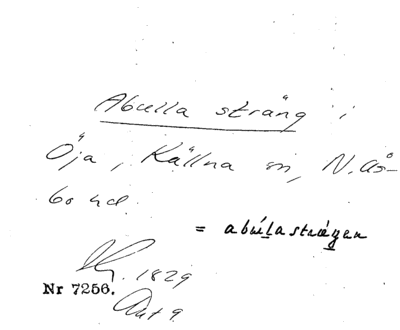 Abulla sträng i
Öja, Källna sn, N. Ås-
bo hd.
= abúlastrǽŋen
1829
Nr 7256.
Ant 9